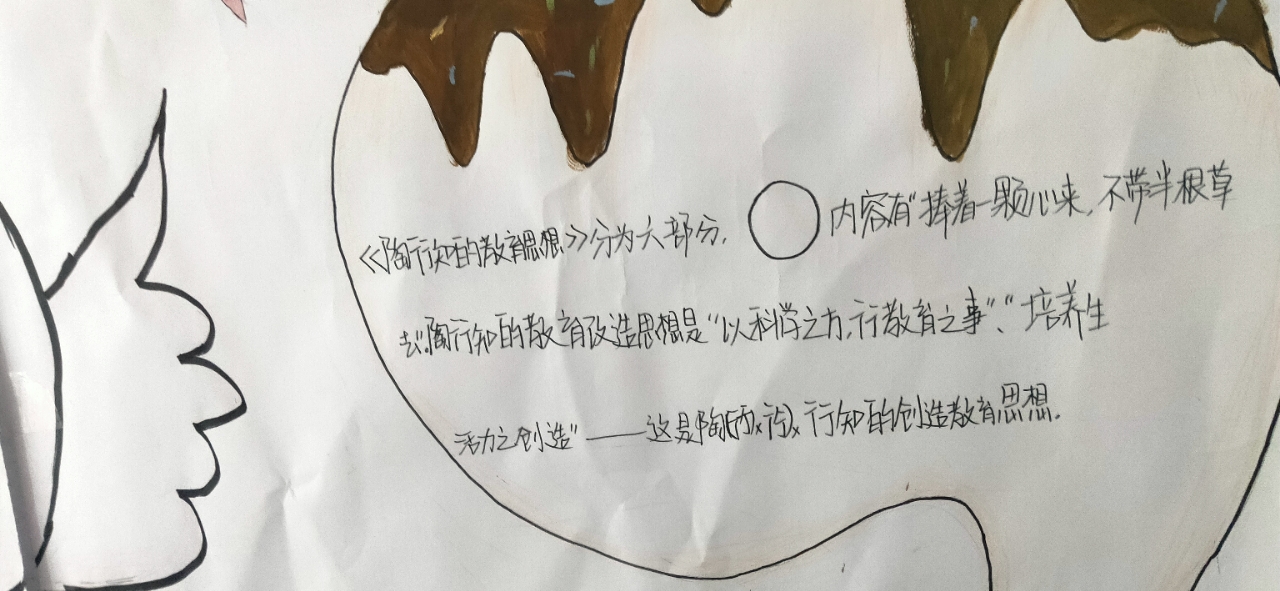 《陶行知的教育思想》分为六部分. 内容有"捧着一颗心来,不带半根草
去"陶行知的教育改造思想是"以科学之方,行教育之事"、"培养生
活力之创造"——这是陶行知的创造教育思想.